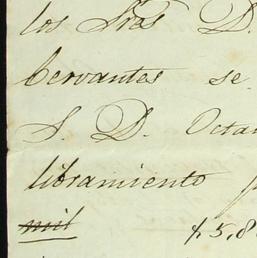 los Sres D.
Cervantes se
S. D. Octa
libramiento
mil $5,8